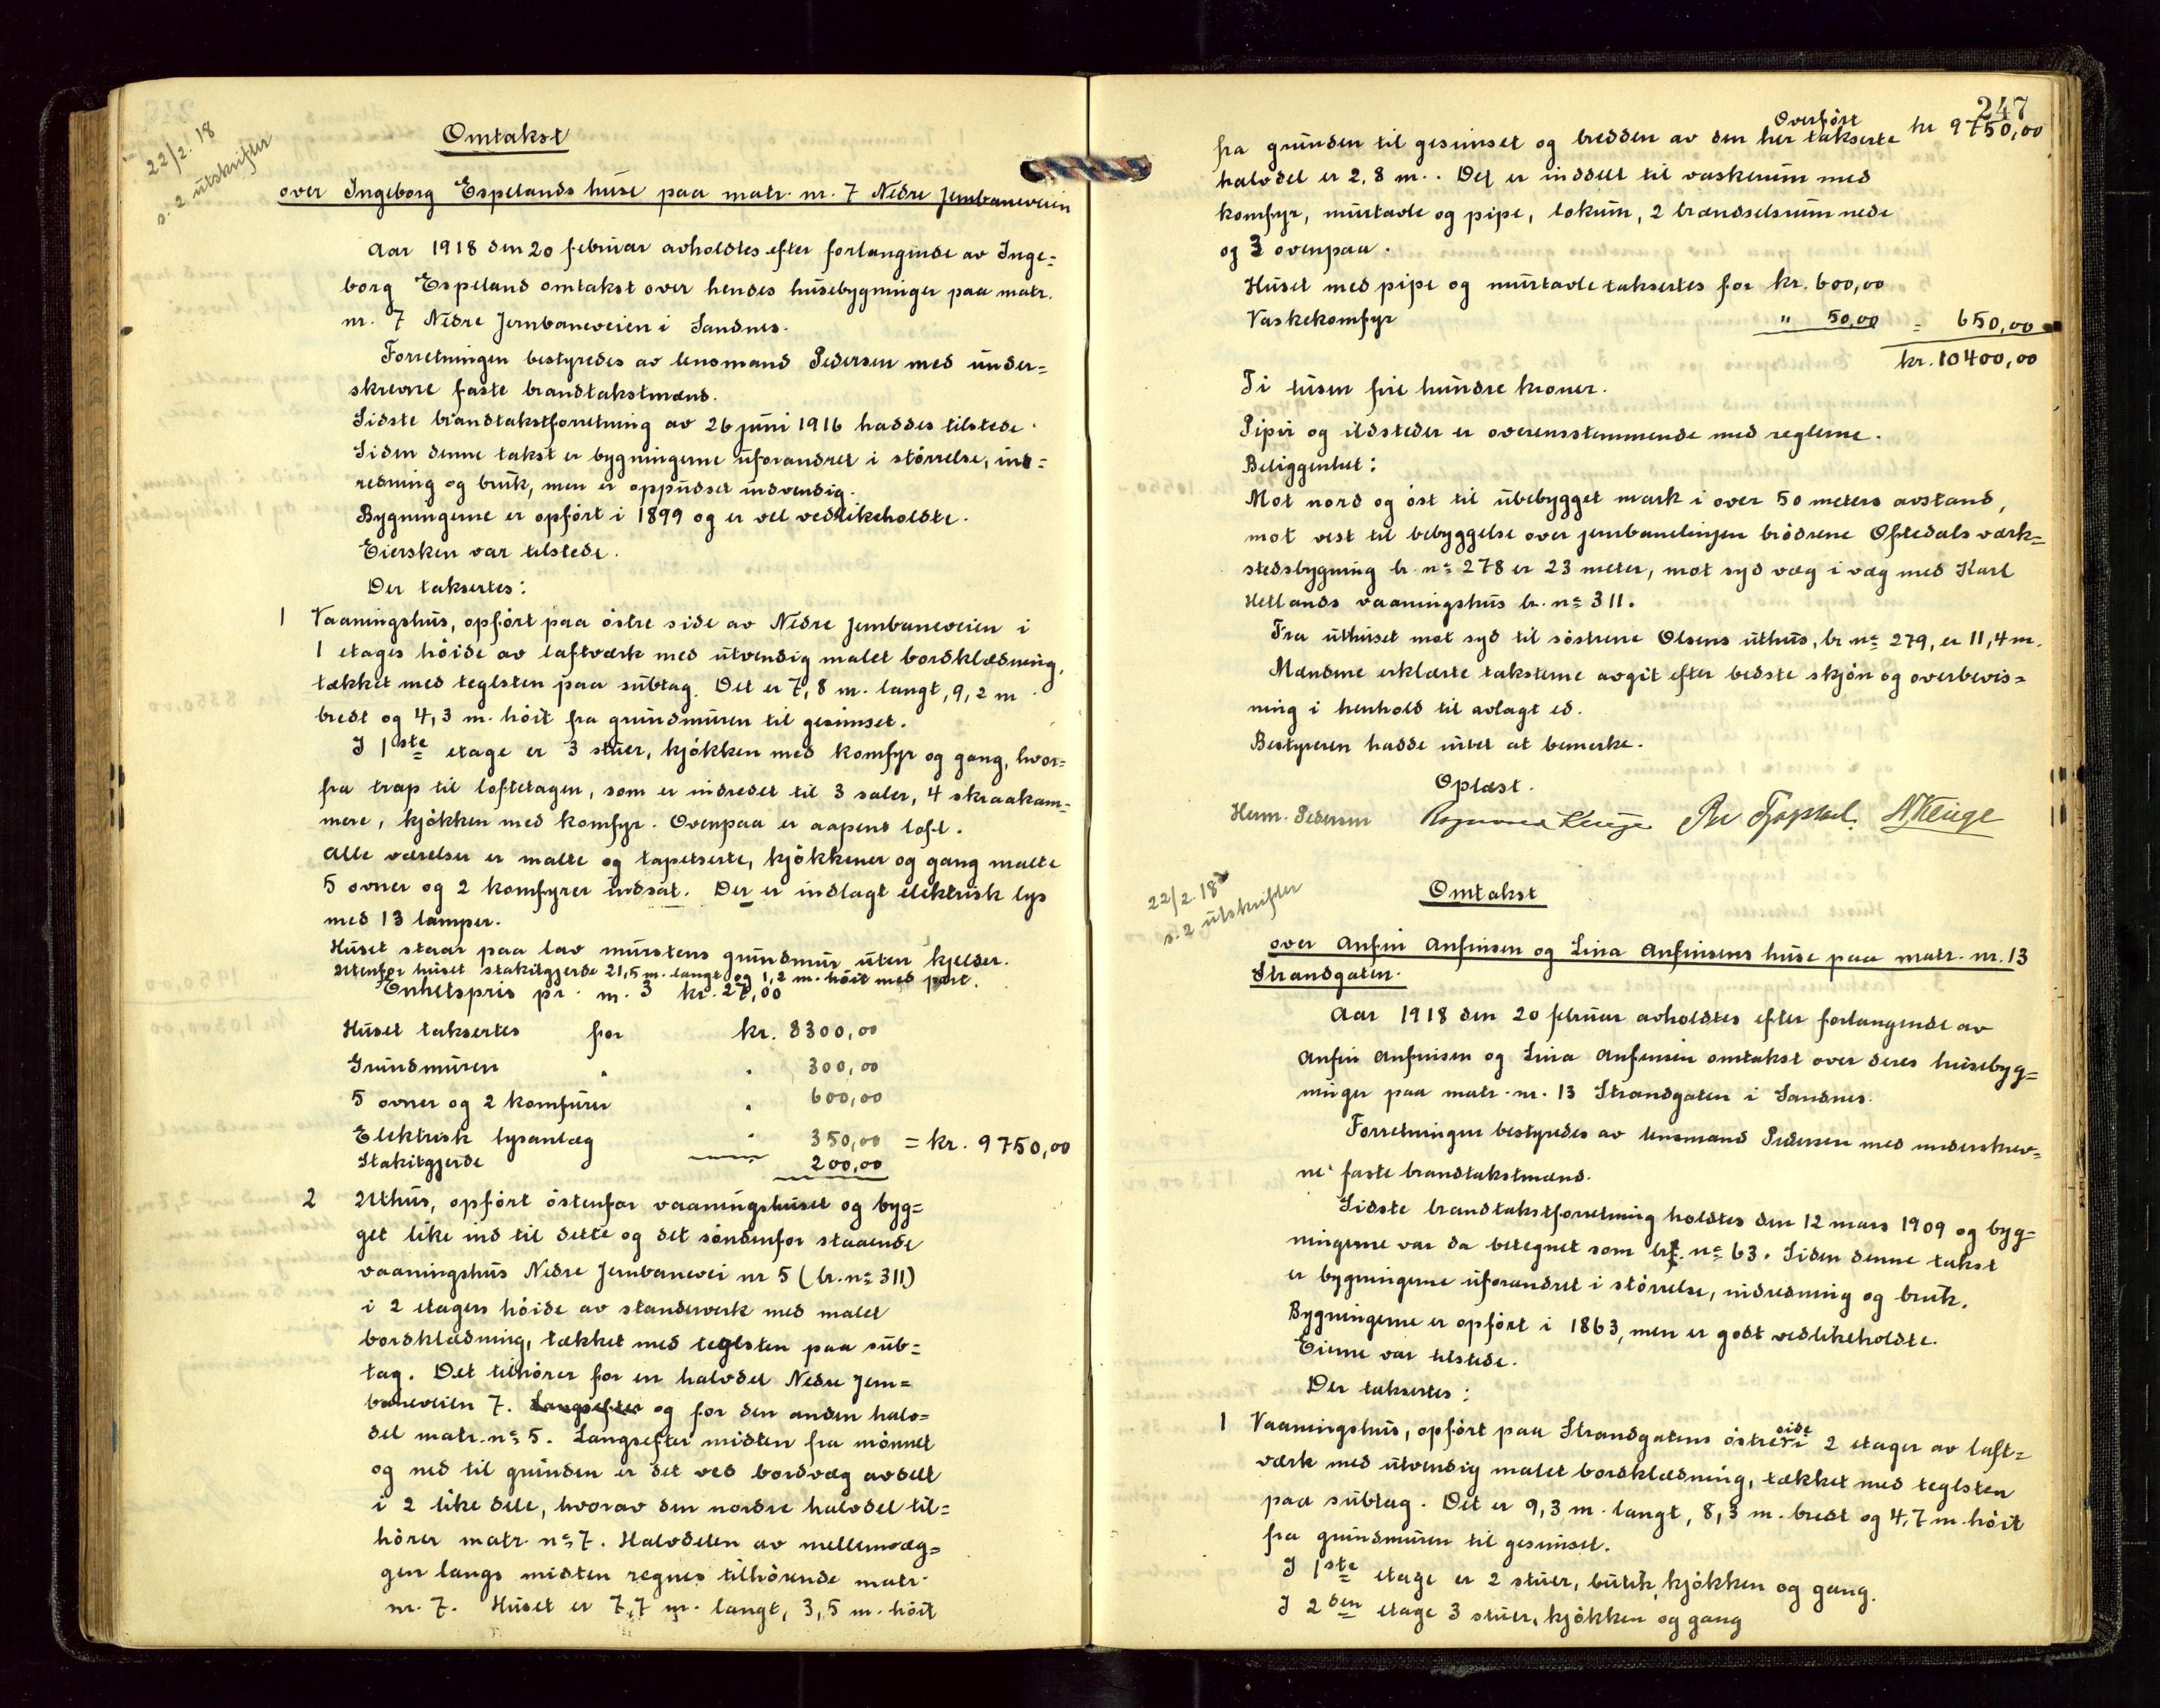 22/2. 18
s. 2 utskrifter
Omtakst
over Ingeborg Espelands huse paa matr. nr. 7 Nedre Jernbaneveien
Aar 1918 den 20 februar avholdtes efter forlangende av Inge=
borg Espeland omtakst over hendes husebygninger paa matr.
nr. 7 Nedre Jernbaneveien i Sandnes.
Forretningen bestyredes av lensmand Pedersen med under=
skrevne faste brandtakstmænd.
Sidste brandtakstforretning av 26 juni 1916 haddes tilstede.
Siden denne takst er bygningerne uforandret i størrelse, ind=
redning og bruk, men er oppudset indvendig.
Bygningerne er opført i 1899 og er vel vedlikeholdte.
Eiersken var tilstede.
Der taksertes:
1 Vaaningshus, opført paa østre side av Nedre Jernbaneveien i
1 etages høide av laftværk med utvendig malet bordklædning,
tækket med teglsten paa subtag. Det er 7,8 m. langt, 9,2 m
bredt og 4,3 m. høit fra grundmuren til gesimset.
I 1ste etage er 3 stuer, kjøkken med komfyr og gang, hvor=
fra trap til loftetagen, som er indredet til 3 saler, 4 skraakam=
mere, kjøkken med komfyr. Ovenpaa er aapent loft.
Alle værelser er malte og tapetserte, kjøkkener og gang malte
5 ovner og 2 komfyrer indsat. Der er indlagt elektrisk lys
med 13 lamper.
Huset staar paa lav murstens grundmur uten kjelder.
Utenfor huset stakitgjerde 21,5 m. langt og 1,2 m. høit med port.
Enhetspris pr. m. 3 kr. 27,00
Huset taksertes for kr. 8300,00
Grundmuren " " 300,00
5 ovner og 2 komfurer " 600,00
Elektrisk lysanlæg " 350,00 = kr. 9750,00
Stakitgjerde 200,00
2 Uthus, opført østenfor vaaningshuset og byg=
get like ind til dette og det søndenfor staaende
vaaningshus Nedre Jernbanevei nr 5 (br. no 311)
i 2 etagers høide av standerverk med malet
bordklædning, tækket med teglsten paa sub=
tag. Det tilhører for en halvdel Nedre Jern=
baneveien 7. Langsefter og for den anden halv=
del matr. no 5. Langsefter midten fra mønnet
og ned til grunden er det ved bordvæg avdelt
i 2 like dele, hvorav den nordre halvdel til=
hører matr. no 7. Halvdelen av mellemvæg=
gen langs midten regnes tilhørende matr.
nr. 7. Huset er 7,7 m. langt, 3,5 m. høit
247
Overført kr 9750,00
fra grunden til gesimset og bredden av den her takserte
halvdel er 2,8 m. . Det er inddelt til vaskerum med
komfyr, murtavle og pipe, lokum, 2 brændselsrum nede
og 3 ovenpaa.
Huset med pipe og murtavle taksertes for kr. 600,00
Vaskekomfyr " 50,00 = 650,00
kr. 10400,00
Ti tusen fire hundre kroner.
Piper og ildsteder er overensstemmende med reglerne.
Beliggenhet:
Mot nord og øst til ubebygget mark i over 50 meters avstand,
mot vest til bebyggelse over jernbanelinjen brødrene Oftedals værk=
stedsbygning br. no 278 er 23 meter, mot syd væg i væg med Karl
Hetlands vaaningshus br. no 311.
Fra uthuset mot syd til søstrene Olsens uthus, br no 279, er 11,4 m.
Mændene erklærte taksterne avgit efter bedste skjøn og overbevis=
ning i henhold til avlagt ed.
Bestyreren hadde intet at bemerke.
Oplæst.
Herm. Pedersen
22/2. 18
s. 2 utskrifter
Omtakst
over Anfin Anfinsen og Lina Anfinsens huse paa matr. nr. 13
Strandgaten.
Aar 1918 den 20 februar avholdtes efter forlangende av
Anfin Anfinsen og Lina Anfinsen omtakst over deres husebyg=
ninger paa matr. nr. 13 Strandgaten i Sandnes.
Forretningen bestyredes av lensmand Pedersen med underskrev=
ne faste brandtakstmænd.
Sidste brandtakstforretning holdtes den 12 mars 1909 og byg=
ningerne var da betegnet som br. no 63. Siden denne takst
er bygningerne uforandret i størrelse, indredning og bruk.
Bygningerne er opført i 1863, men er godt vedlikeholdte.
Eierne var tilstede.
Der taksertes:
1 Vaaningshus, opført paa Strandgatens østre side i 2 etager av laft=
værk med utvendig malet bordklædning, tækket med teglsten
paa subtag. Det er 9,3 m. langt, 8,3 m. bredt og 4,7 m. høit
fra grundmuren til gesimset.
I 1ste etage er 2 stuer, butik, kjøkken og gang.
I 2den etage 3 stuer, kjøkken og gang